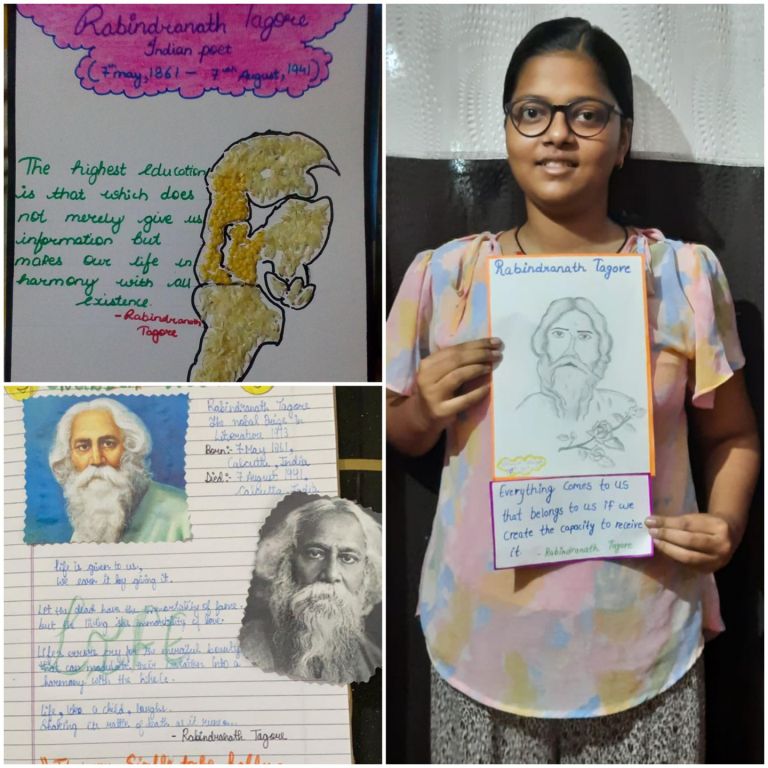 Rabindranath Tagore
Indian poet
(7th may, 1861 - 7th August, 1941)
The highest education
is that which does
not merely give us
information but
makes our life in
harmony with all
existence.
- Rabindranath
Tagore
Rabindranath Tagore
Everything comes to us
that belongs to us if we
create the capacity to receive
it - Rabindranath Tagore
Rabindranath Tagore
the nobal Prize in
Literature 1913
Born:- 7 May 1861,
Calcutta, India
Died:- 7 August 1941,
Calcutta, India
life is given to us,
we earn it by giving it.
Let the dead have the immortality of fame,
but the living the immortality of love.
Life's errors cry for the merciful beauty
that can modulate their isolation into a
harmony with the whole.
Life, like a child, laughs,
Shaking its rattle of death as it runs...
- Rabindranath Tagore